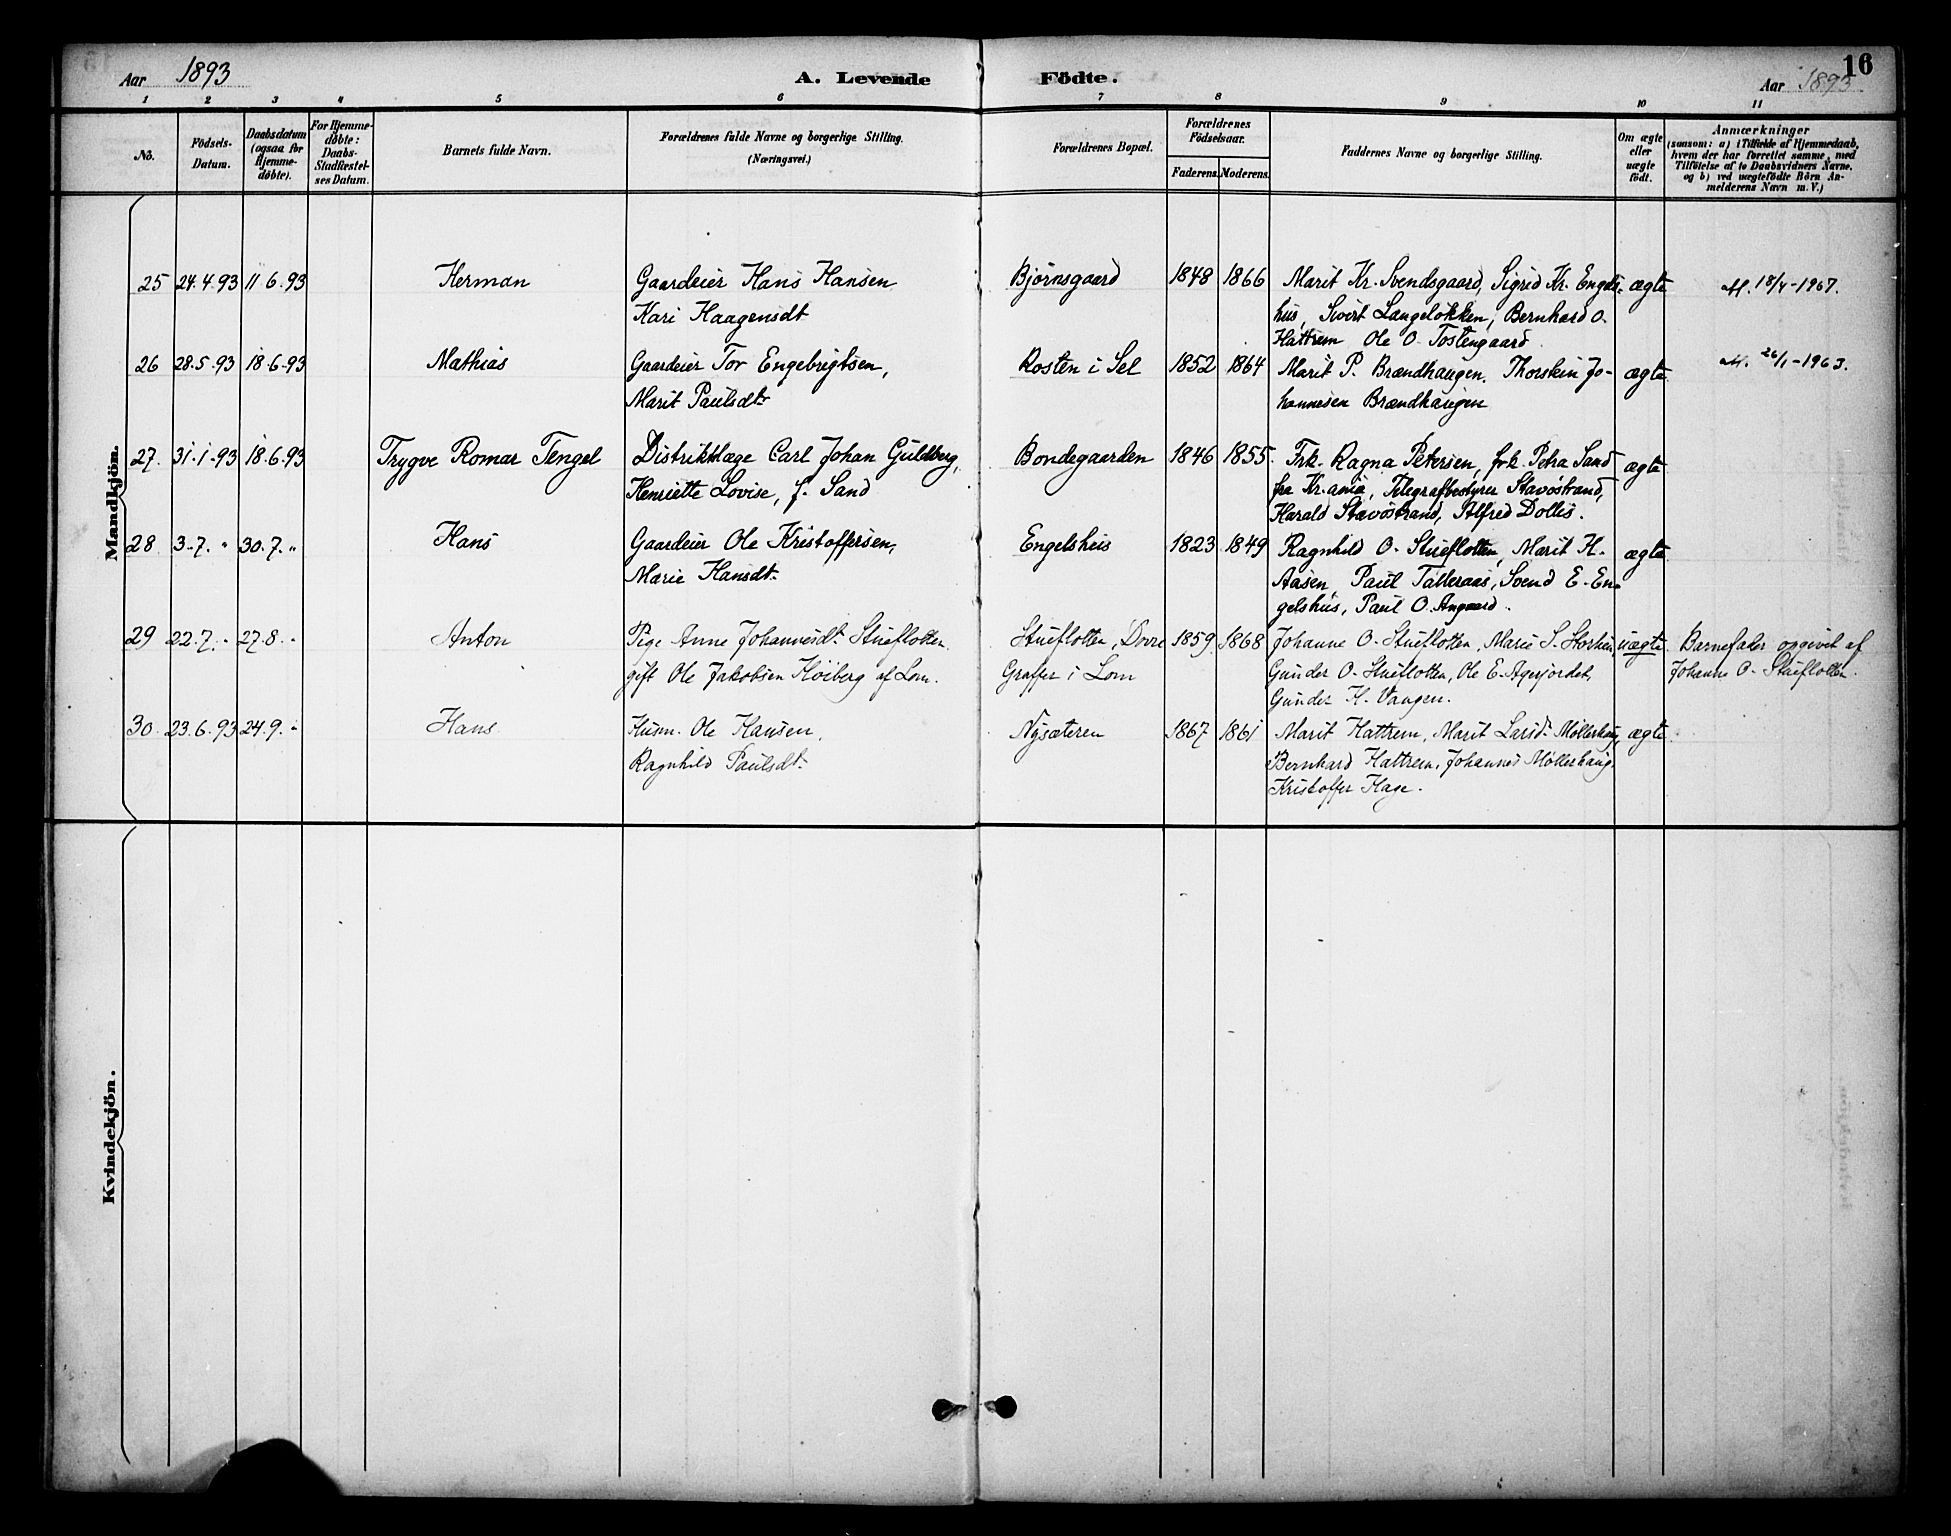 16
Aar 1893
A. Levende Födte.
Aar 1893
1 2 3 4 5 6 7 8 9 10 11
No.
Födsels-Datum.
Daabsdatum (ogsaa for Hjemme-döbte).
For Hjemme-döbte: Daabs-Stadfæstel-ses Datum.
Barnets fulde Navn.
Forældrenes fulde Navne og borgerlige Stilling.
(Næringsvei.)
Forældrenes Bopæl.
Forældrenes Födselsaar.
Faderens. Moderens.
Faddernes Navne og borgerlige Stilling.
Om ægte eller uægte født.
Anmærkninger
(saasom: a) i Tilfælde af Hjemmedaab,
hvem der har forrettet samme, med
Tilföielse af to Daabsvidners Navne,
og b) ved uægtefödte Börn An-
melderens Navn m. V.)
Mandkjön.
25 24.4.93 11.6.93 Herman Gaardeier Hans Hansen Bjørnsgaard 1848 1866 Marit Kr. Svendsgaard, Sigrid Kr. Engels- ægte 18/4-1967.
Kari Haagensdt hus, Sivert Langeløkken, Bernhard O.
Hattrem Ole O. Tostengaard.
26 28.5.93 18.6.93 Mathias Gaardeier Tor Engebrigtsen, Rosten i Sel 1852 1864 Marit P. Brændhaugen. Thorstein Jo- ægte 26/1-1963.
Marit Paulsdt. hannesen Brændhaugen
27. 31.1.93 18.6.93 Trygve Romar Tengel Distriktslæge Carl Johan Guldberg, Bondegaarden 1846 1855 Frk. Ragna Petersen, frk. Petra Sand ægte
Henriette Lovise, f. Sand fra Kr.ania, Telegrafbestyrer Stavøstrand,
Harald Stavøstrand, Alfred Dollis.
28 3.7. " 30.7. " Hans Gaardeier Ole Kristoffersen, Engelshus 1823 1849 Ragnhild O. Stueflotten, Marit H. ægte
Marie Hansdt. Aasen, Paul Talleraas, Svend E. En-
gelshus, Paul O. Angaard.
29 22.7. " 27.8. " Anton Pige Anne Johannesdt. Stueflotten Stueflotten, Dovre 1859 1868 Johanne O. Stueflotten, Marie S. uægte Barnefader opgivet af
gift Ole Jakobsen Høiberg af Lom. Graffer i Lom Gunder O. Stueflotten, Ole E. Agerjordet, Johanne O. Stueflotten.
Gunder H. Vangen.
30. 23.6.93 24.9. " Hans Husm. Ole Hansen, Nysæteren 1867 1861 Marit Hattrem, Marit Larsd. Møllerhaug, ægte
Ragnhild Paulsdt. Bernhard Hattrem, Johannes Møllerhaug.
Kristoffer Hage.
Kvindekjön.